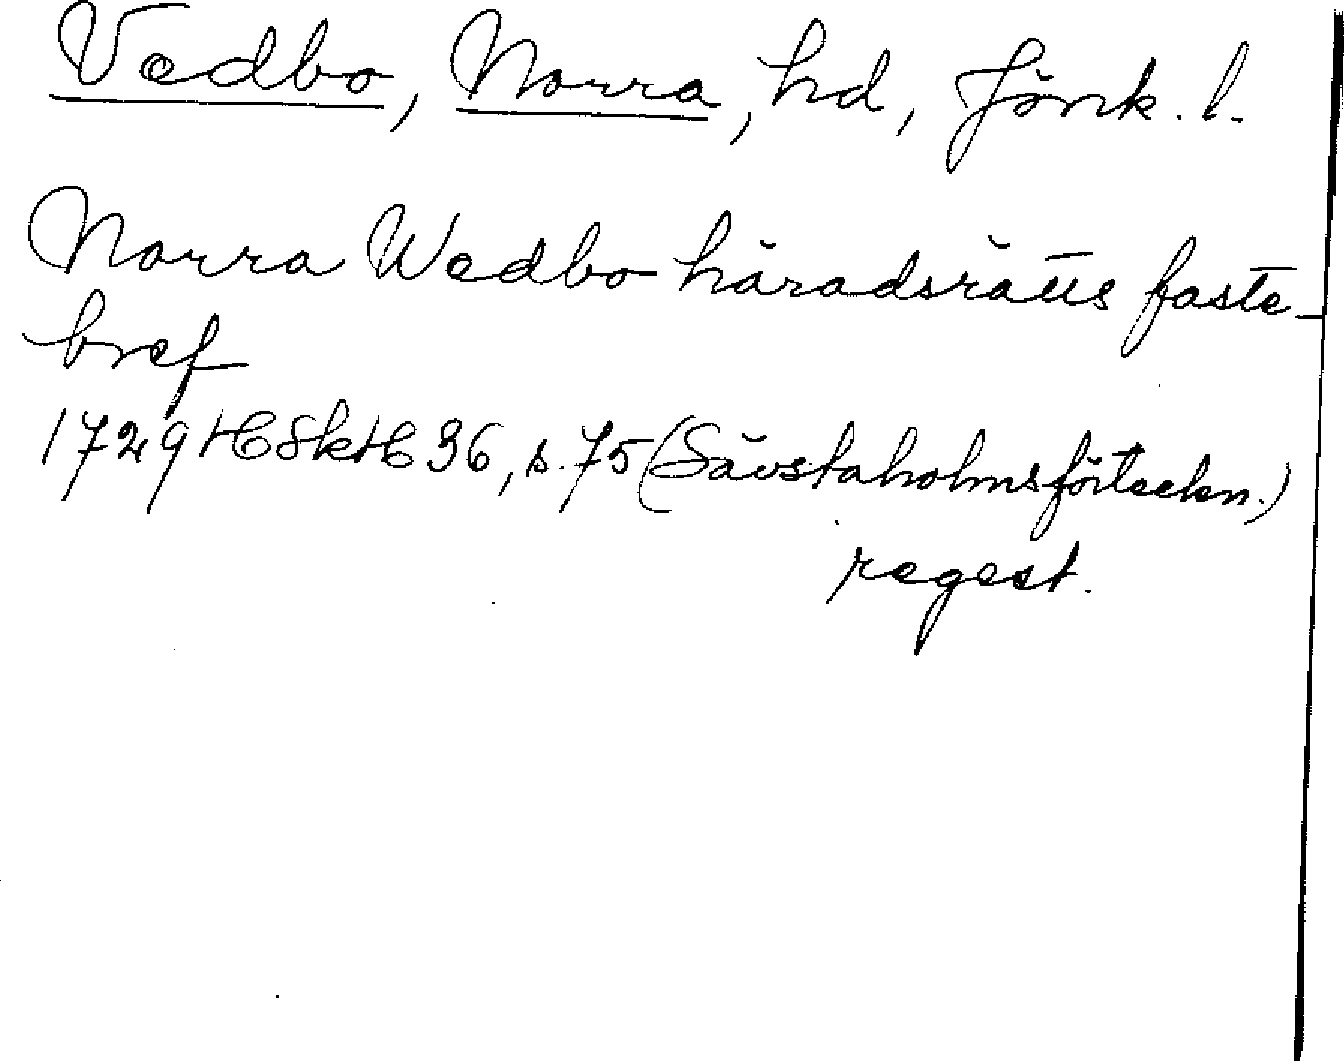 Vedbo, Norra, hd, Jönk. l.
Norra Wedbo häradsrätts faste-
bref
1729 HSkH 36, s. 75 (Sävstaholmsförteckn.)
regest.